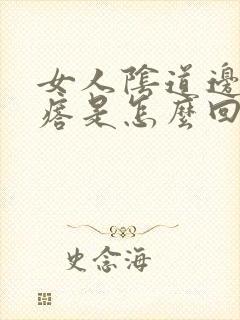 女人陰道邊
痞是怎麼回
史念海